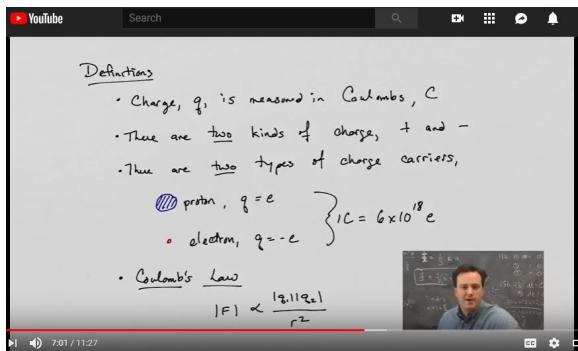 YouTube
Search
Definitions
• Charge, q, is measured in Coulombs, C
• There are two kinds of charge, + and -
• There are two types of charge carriers,
proton, q = e
electron, q = -e
1C = 6x10^18 e
• Coulomb's Law
|F| ∝ |q₁||q₂| / r²
7:01 / 11:27
CC